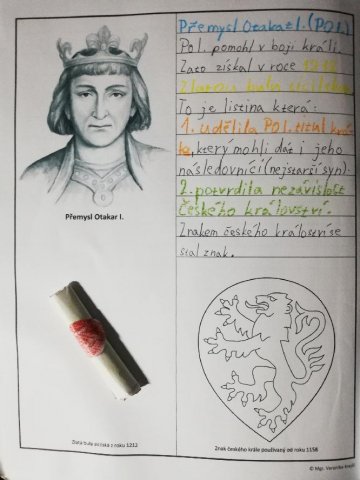 Přemysl Otakar I. (PO1.)
PO1. pomohl v boji králi.
Zato získal v roce 1212
Zlatou bulu sicilskou
To je listina která:
1. udělila PO1. titul krá
le, který mohli dát i jeho
následovníčí (nejstarší syn).
2. potvrdita nezávislost
Českého království.
Znakem českého království se
stal znak.
Přemysl Otakar I.
Zlatá bula sicilská z roku 1212
Znak českého krále používaný od roku 1158
© Mgr. Veronika